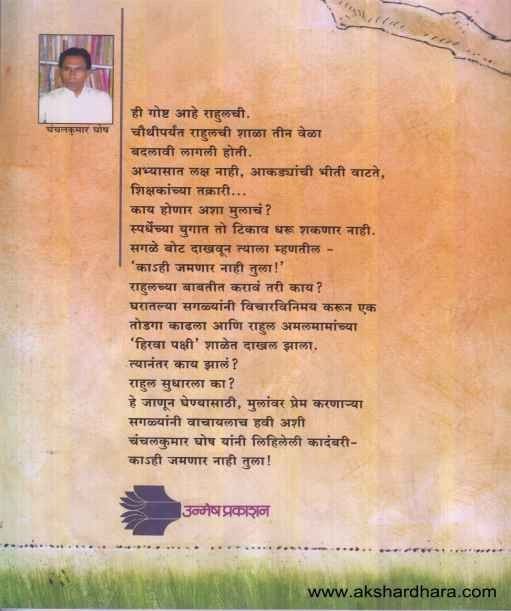 चंचलकुमार घोष
ही गोष्ट आहे राहुलची.
चौथीपर्यंत राहुलची शाळा तीन वेळा
बदलावी लागली होती.
अभ्यासात लक्ष नाही, आकड्यांची भीती वाटते,
शिक्षकांच्या तक्रारी...
काय होणार अशा मुलाचं?
स्पर्धेच्या युगात तो टिकाव धरू शकणार नाही.
सगळे बोट दाखवून त्याला म्हणतील -
‘काऽही जमणार नाही तुला!’
राहुलच्या बाबतीत करावं तरी काय?
घरातल्या सगळ्यांनी विचारविनिमय करून एक
तोडगा काढला आणि राहुल अमलमामांच्या
‘हिरवा पक्षी’ शाळेत दाखल झाला.
त्यानंतर काय झालं?
राहुल सुधारला का?
हे जाणून घेण्यासाठी, मुलांवर प्रेम करणाऱ्या
सगळ्यांनी वाचायलाच हवी अशी
चंचलकुमार घोष यांनी लिहिलेली कादंबरी-
काऽही जमणार नाही तुला!
उन्मेष प्रकाशन
www.akshardhara.com